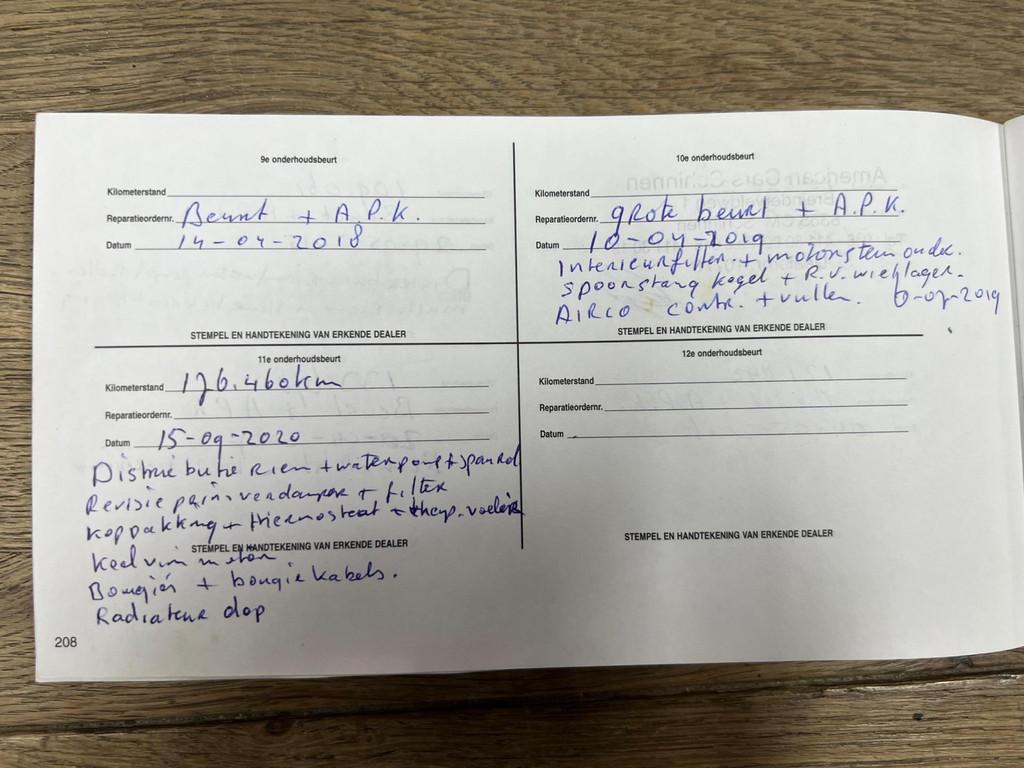 9e onderhoudsbeurt
Kilometerstand
Reparatieordernr. Beurt + A.P.K.
Datum 14-04-2018
STEMPEL EN HANDTEKENING VAN ERKENDE DEALER
10e onderhoudsbeurt
American Cars Schinnen
Kilometerstand
Reparatieordernr. grote beurt + A.P.K.
Datum 10-04-2019
Interieurfilter + motorsteun onder.
Spoorstang kogel + R.V. wiellager.
AIRCO contr. + vullen. 0-07-2019
STEMPEL EN HANDTEKENING VAN ERKENDE DEALER
11e onderhoudsbeurt
Kilometerstand 176.460km
Reparatieordernr.
Datum 15-09-2020
Distributie Riem + waterpomp + spanrol
Revisie prins verdamper + filter
koppakking + thermostaat + temp. voeler
STEMPEL EN HANDTEKENING VAN ERKENDE DEALER
Bougies + bougie kabels.
Radiateur dop
12e onderhoudsbeurt
Kilometerstand
Reparatieordernr.
Datum
STEMPEL EN HANDTEKENING VAN ERKENDE DEALER
208